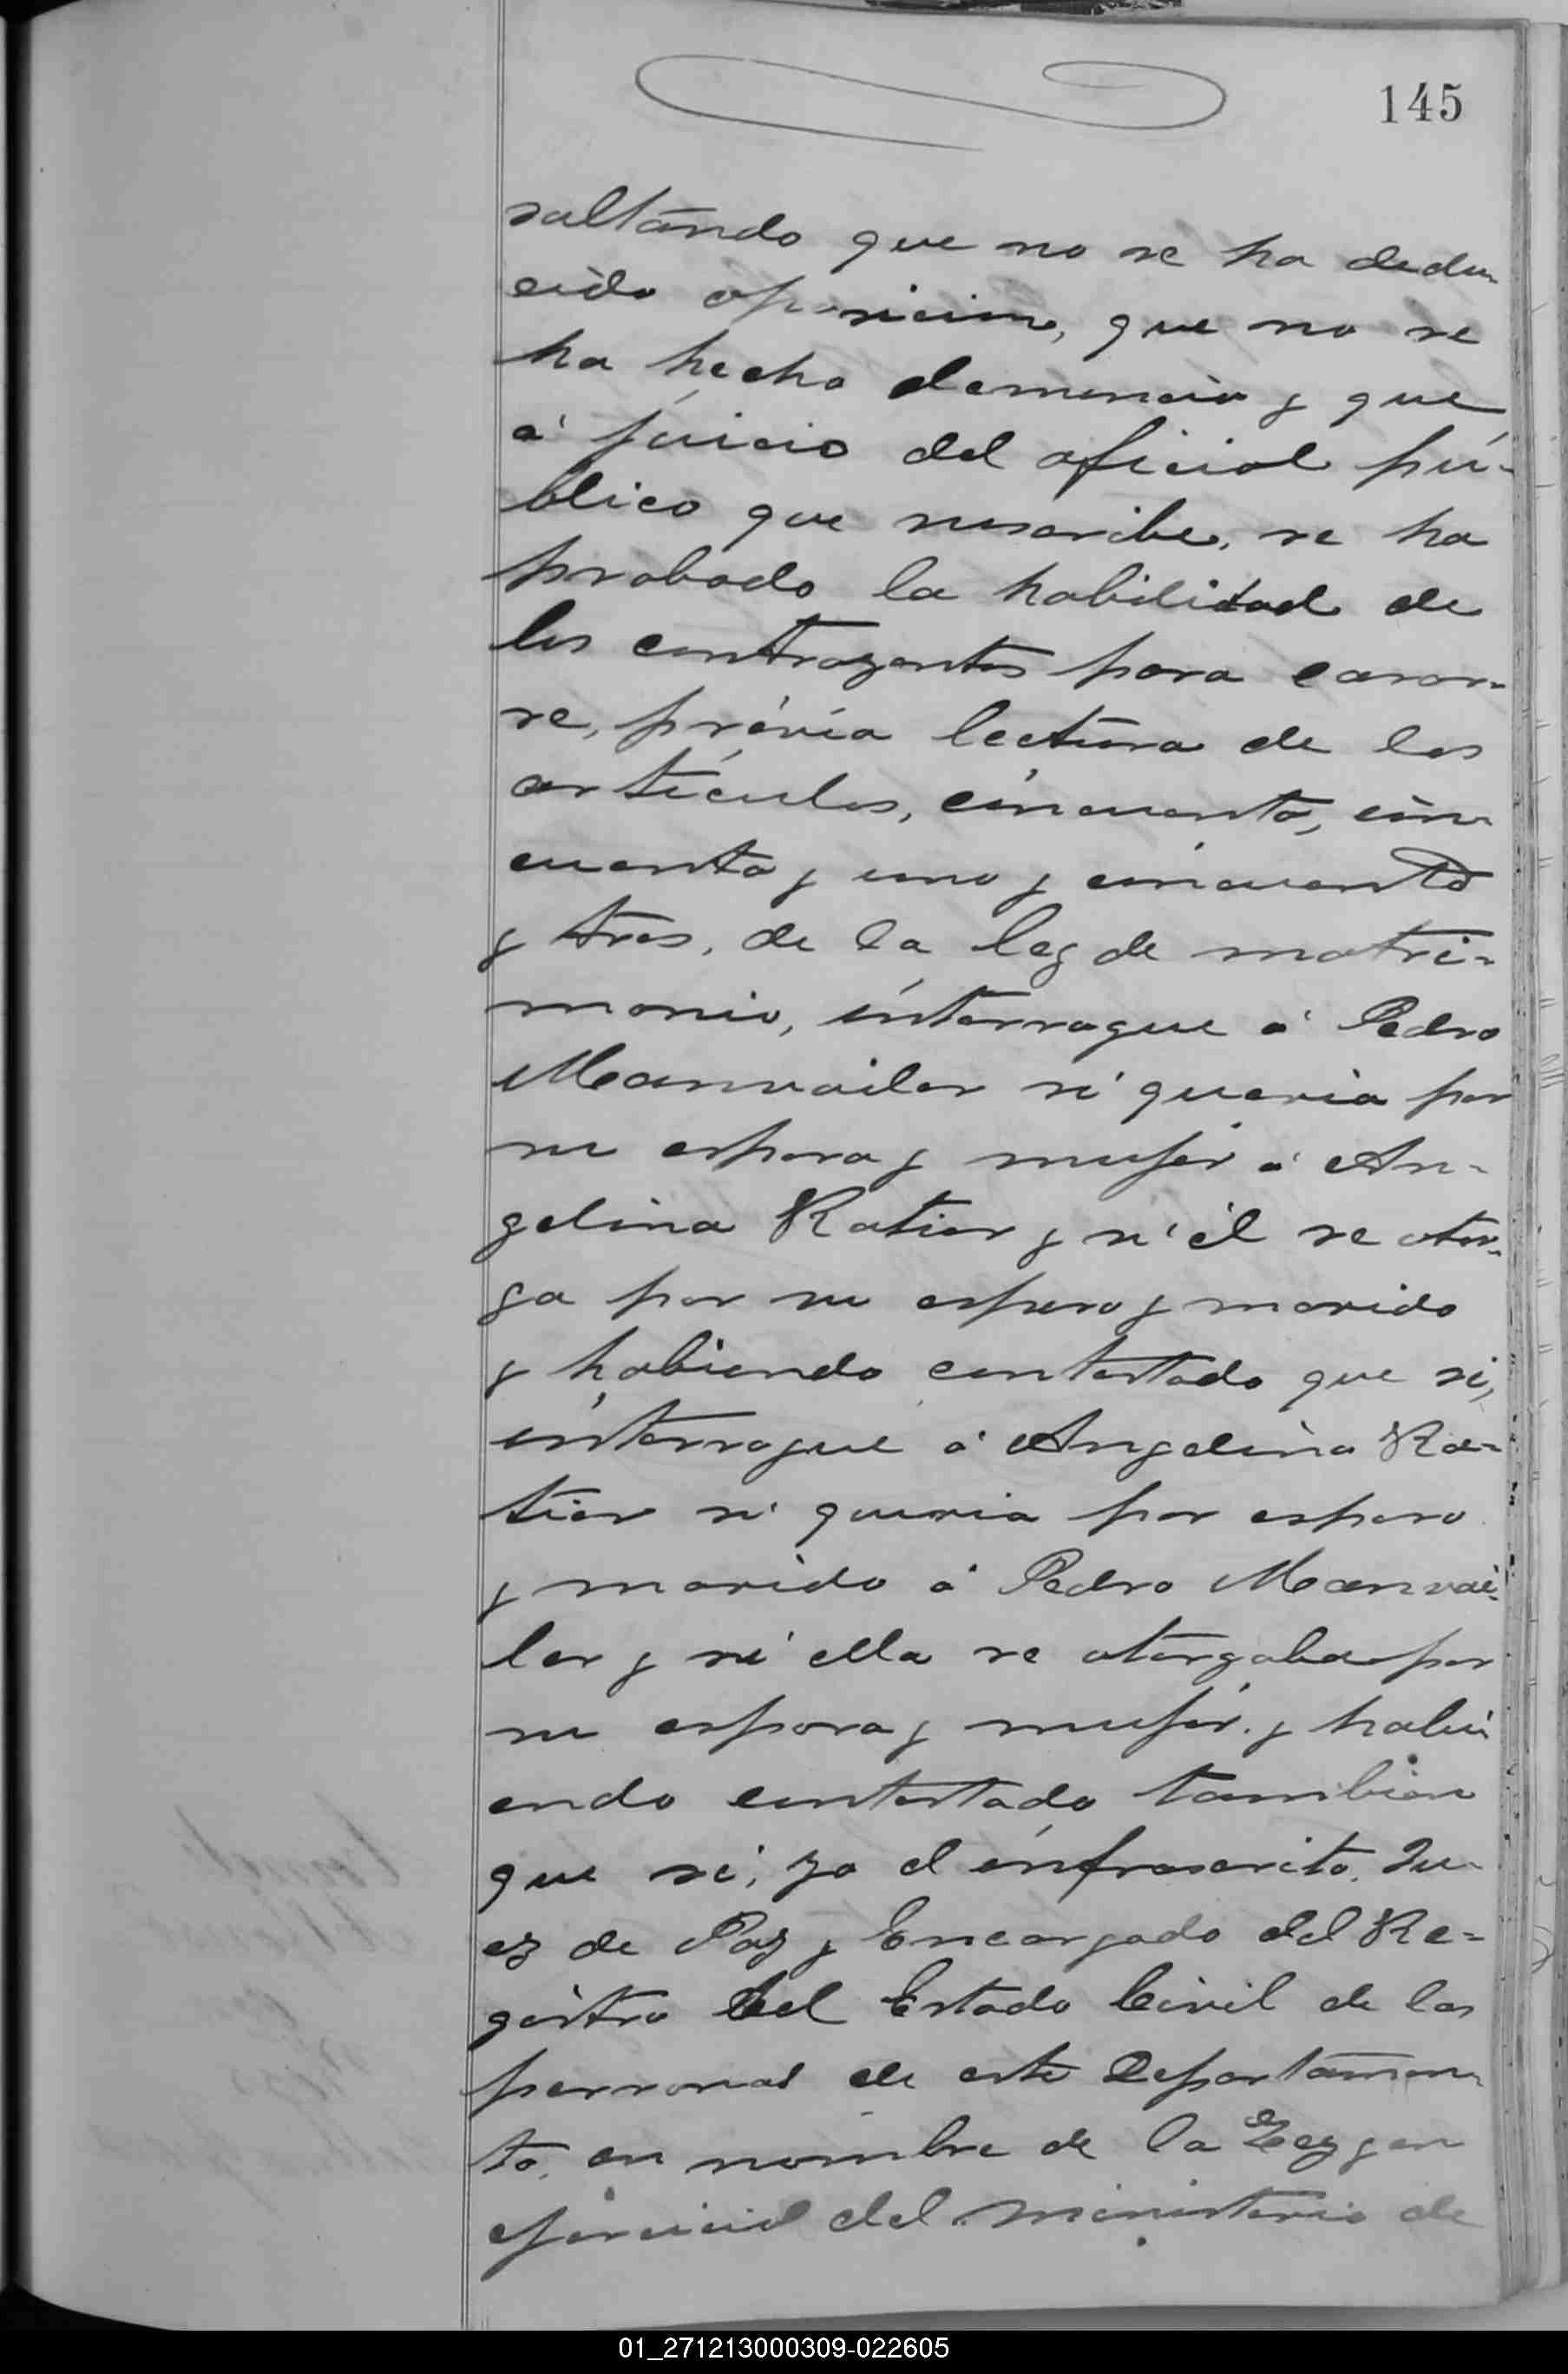 145
sultando que no se ha dedu-
cido oposicion, que no se
ha hecho denuncia y que
á juicio del oficial pú-
blico que suscribe, se ha
probado la habilidad de
los contrayentes para casar-
se, prévia lectura de los
artículos, cincuenta, cin-
cuenta y uno y cincuenta
y tres, de la ley de matri-
monio, interrogue á Pedro
Manvailer si queria por
su esposa y mujer á An-
gelina Ratier y si él se otor-
ga por su esposo y marido
y habiendo contestado que si,
interrogue á Angelina Ra-
tier si queria por esposo
y marido á Pedro Manvai-
ler y si ella se otorgaba por
su esposa y mujer. y habi-
endo contestado tambien
que si, yo el infrascrito. Ju-
ez de Paz y Encargado del Re-
gistro del Estado Civil de las
personas de este Departamen-
to, en nombre de la Ley y en
ejercicio del ministerio de
01_271213000309-022605